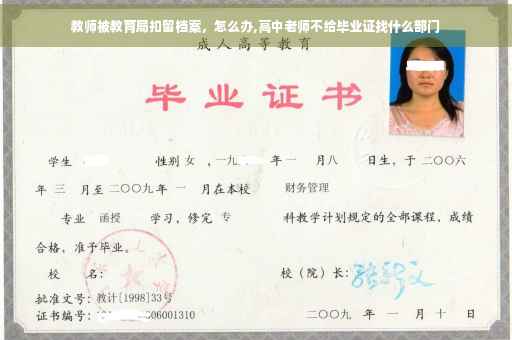 教师被教育局扣留档案，怎么办,高中老师不给毕业证找什么部门
成人高等教育
毕业证书
学生 性别 女 ，一九 年 一 月八 日生，于 二〇〇六
年 三 月至 二〇〇九 年 一 月在本校 财务管理
专业 函授 学习，修完 专 科教学计划规定的全部课程，成绩
合格，准予毕业。
校 名： 校（院）长：
批准文号：教计[1998]33号
证书编号： 06001310 二〇〇九 年 一 月 十 日